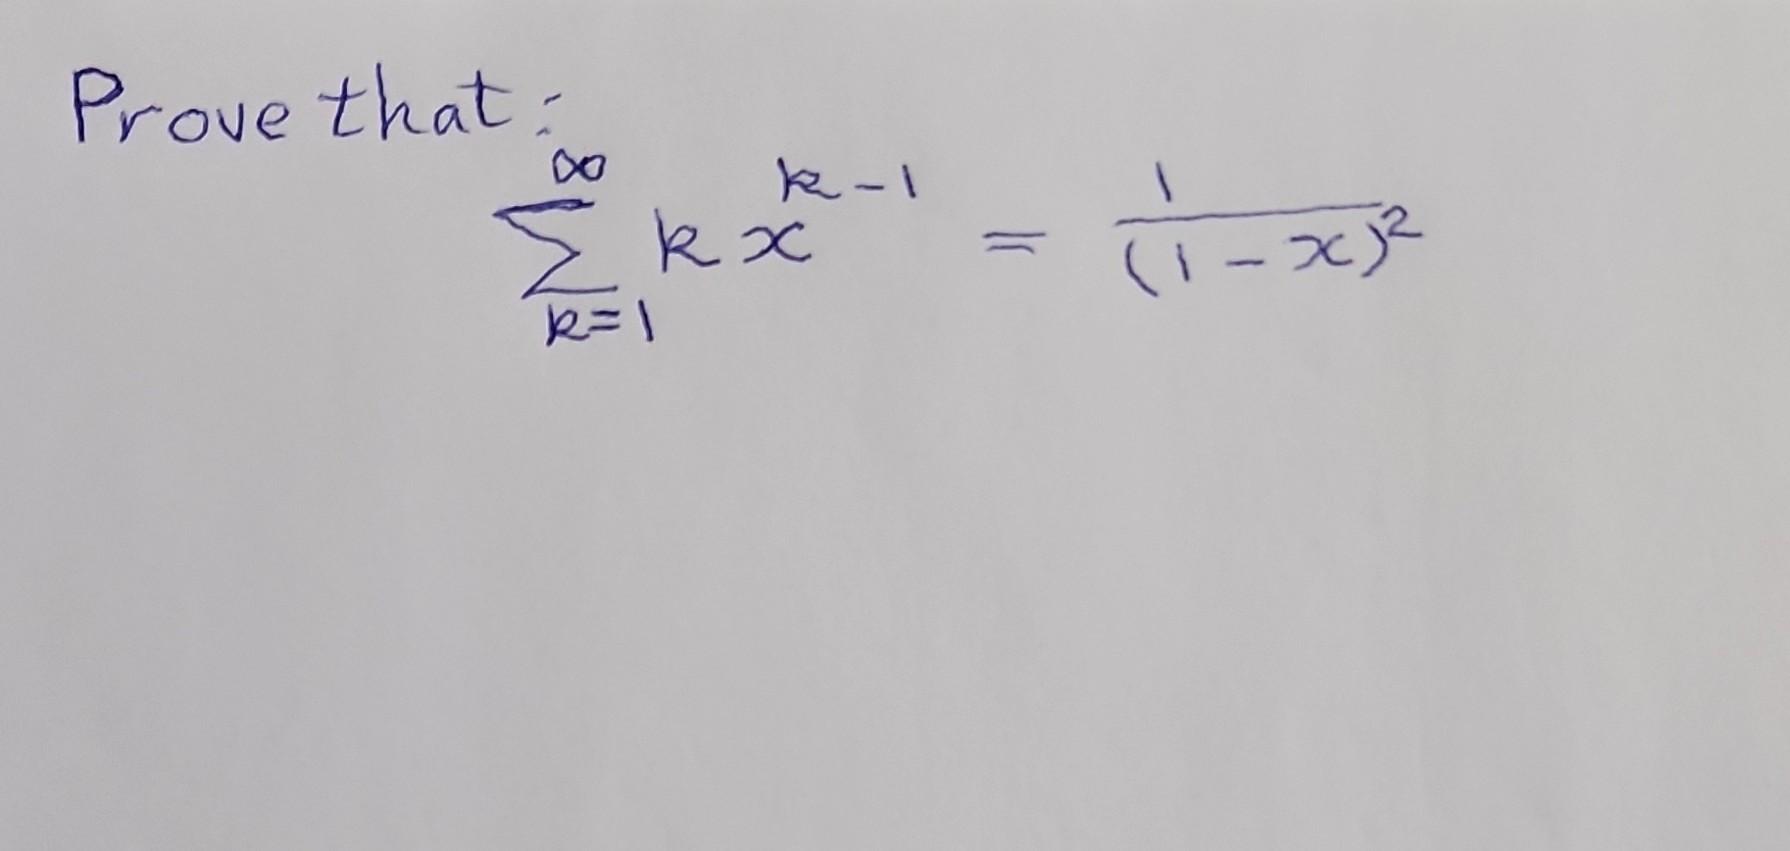 Prove that:
∑_{k=1}^{∞} k x^{k-1} = \frac{1}{(1-x)^2}